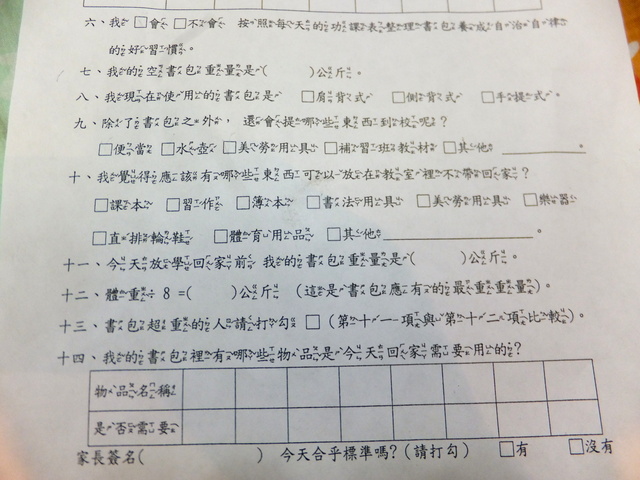 六、我□會□不會 按照每天的功課表整理書包養成自治自律
的好習慣。
七、我的空書包重量是( )公斤。
八、我現在使用的書包是 □肩背式 □側背式 □手提式。
九、除了書包之外，還會提哪些東西到校呢？
□便當 □水壺 □美勞用具 □補習班教材 □其他＿＿＿＿＿。
十、我覺得應該有哪些東西可以放在教室裡不帶回家？
□課本 □習作 □簿本 □書法用具 □美勞用具 □樂器
□直排輪鞋 □體育用品 □其他＿＿＿＿＿＿＿＿。
十一、今天放學回家前 我的書包重量是( )公斤。
十二、體重÷8=( )公斤 (這是書包應有的最重重量)。
十三、書包超重的人請打勾□(第十一項與第十二項比較)。
十四、我的書包裡有哪些物品是今天回家需要用的？
物品名稱
是否需要
家長簽名( ) 今天合乎標準嗎？(請打勾) □有 □沒有